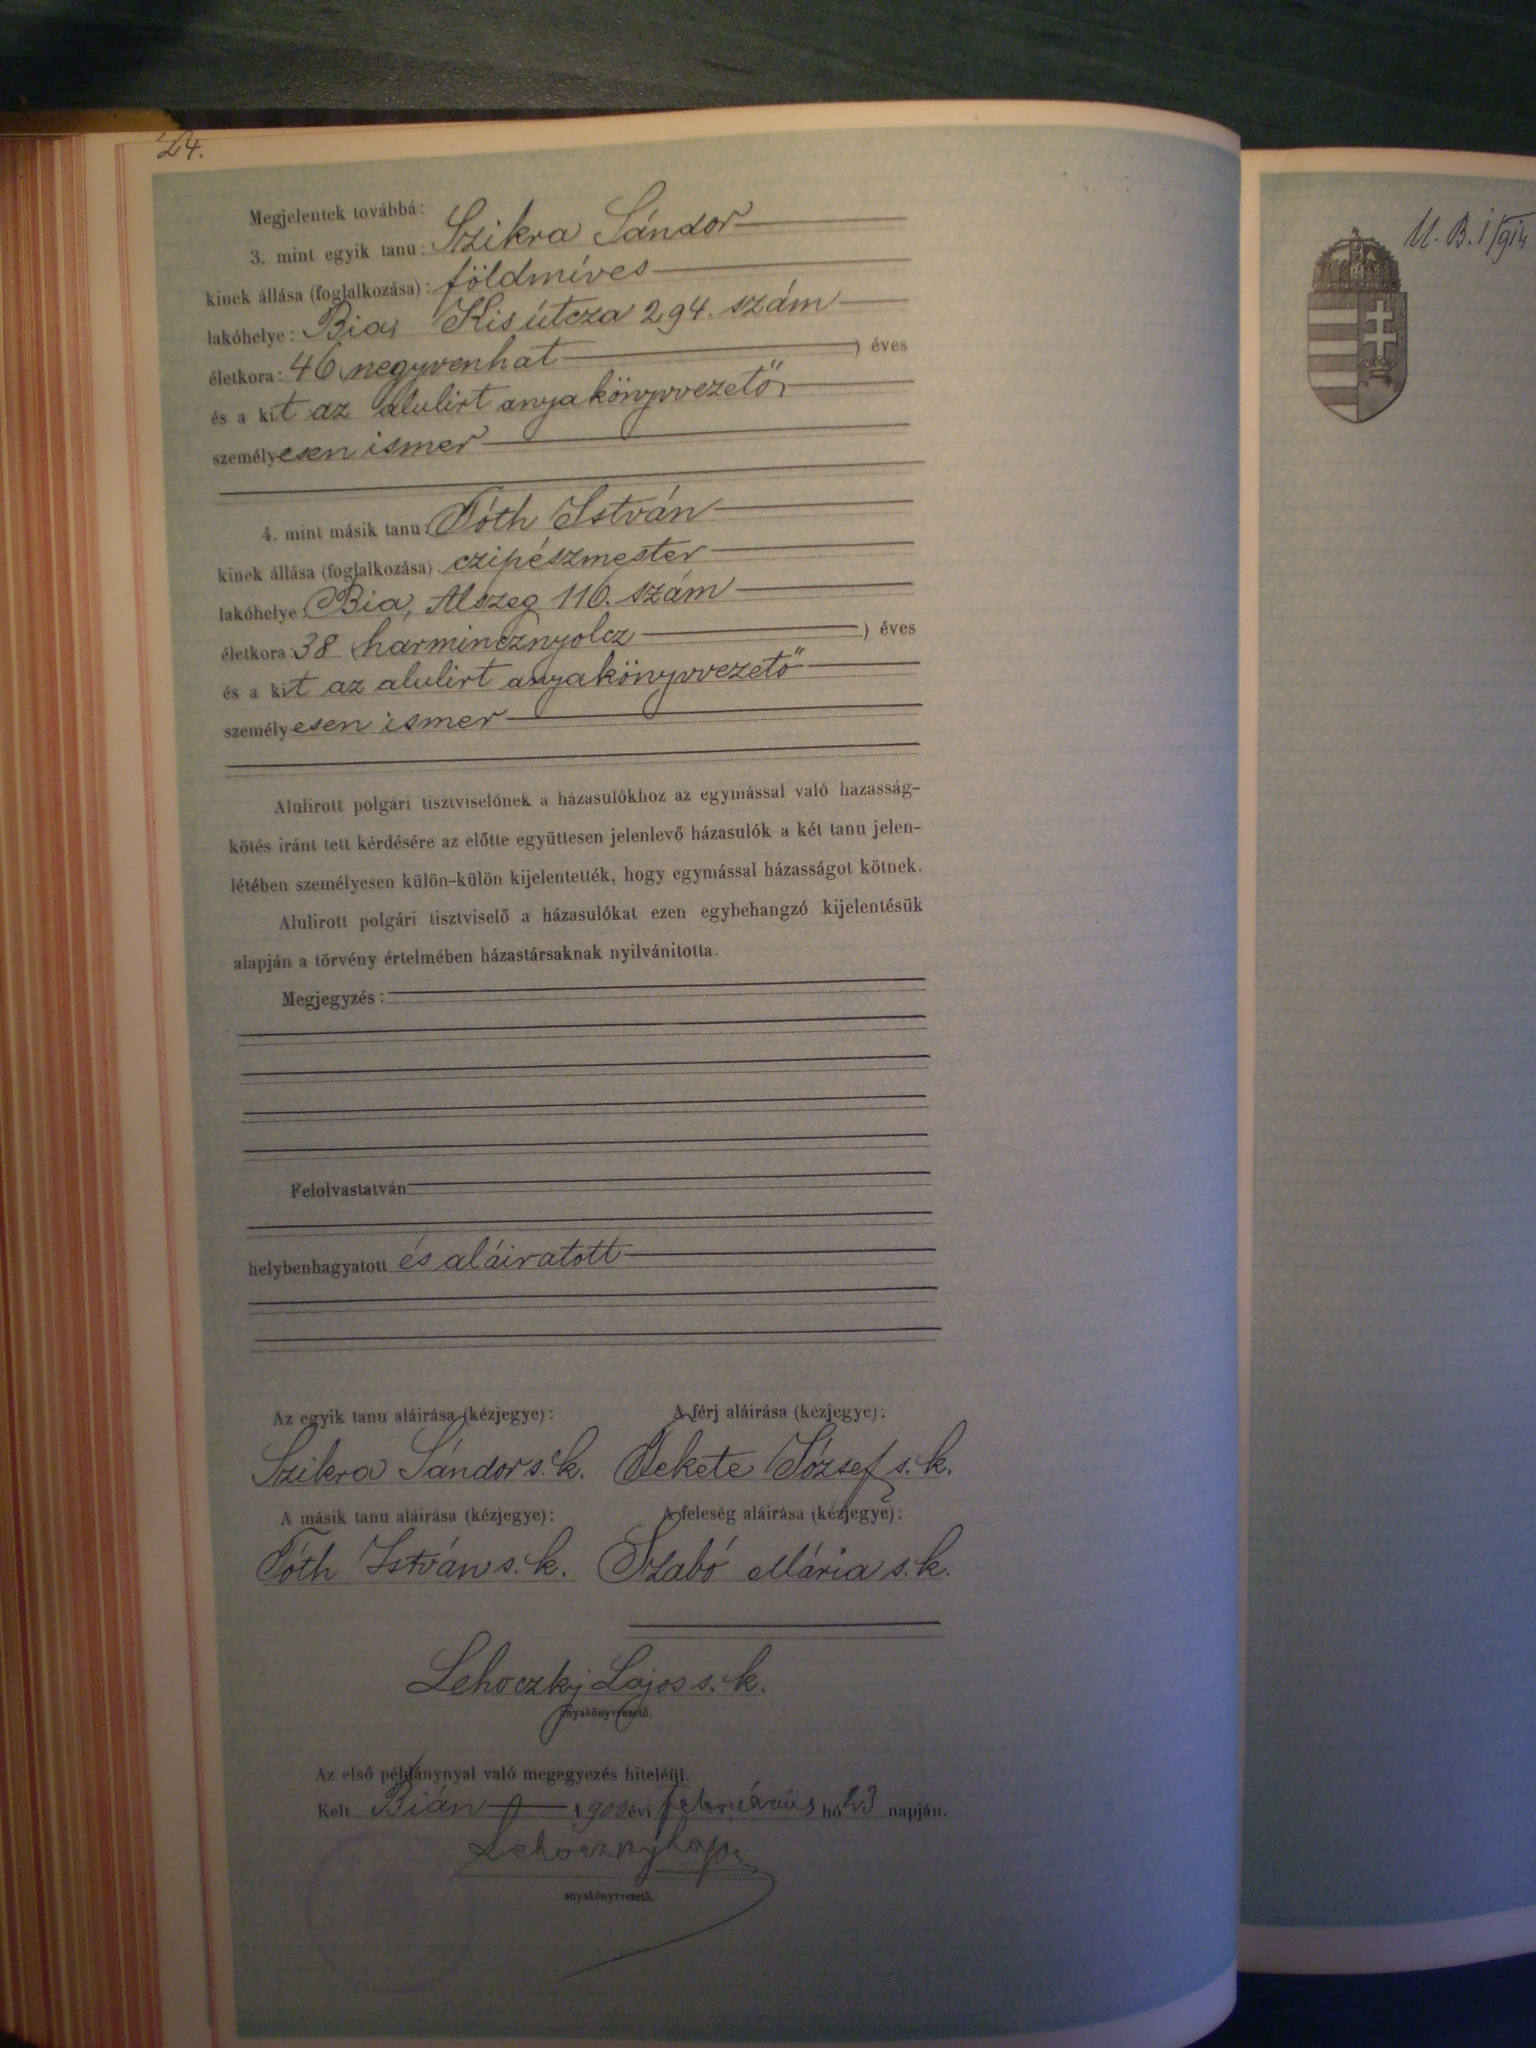 24.
Megjelentek továbbá:
3. mint egyik tanu: Szikra Sándor
kinek állása (foglalkozása): földmíves
lakóhelye: Bia, Kis útcza 294. szám
életkora: 46 negyvenhat ) éves
és a kit az alulirt anyakönyvvezető,
személyesen ismer
4. mint másik tanu: Tóth István
kinek állása (foglalkozása): czipészmester
lakóhelye: Bia, Alszeg 116. szám
életkora: 38 harmincznyolcz ) éves
és a kit az alulirt anyakönyvvezető
személyesen ismer
Alulirott polgári tisztviselőnek a házasulókhoz az egymással való házasság-
kötés iránt tett kérdésére az előtte együttesen jelenlevő házasulók a két tanu jelen-
létében személyesen külön-külön kijelentették, hogy egymással házasságot kötnek.
Alulirott polgári tisztviselő a házasulókat ezen egybehangzó kijelentésük
alapján a törvény értelmében házastársaknak nyilvánitotta.
Megjegyzés:
Felolvastatván
helybenhagyatott és aláiratott
Az egyik tanu aláirása (kézjegye): A férj aláirása (kézjegye):
Szikra Sándor s. k. Fekete József s. k.
A másik tanu aláirása (kézjegye): A feleség aláirása (kézjegye):
Tóth István s. k. Szabó Mária s. k.
Lehoczky Lajos s. k.
anyakönyvvezető.
Az első példánynyal való megegyezés hiteléül.
Kelt Bián évi február hó 23 napján.
Lehoczky Lajos
anyakönyvvezető.
U. B. 1/914